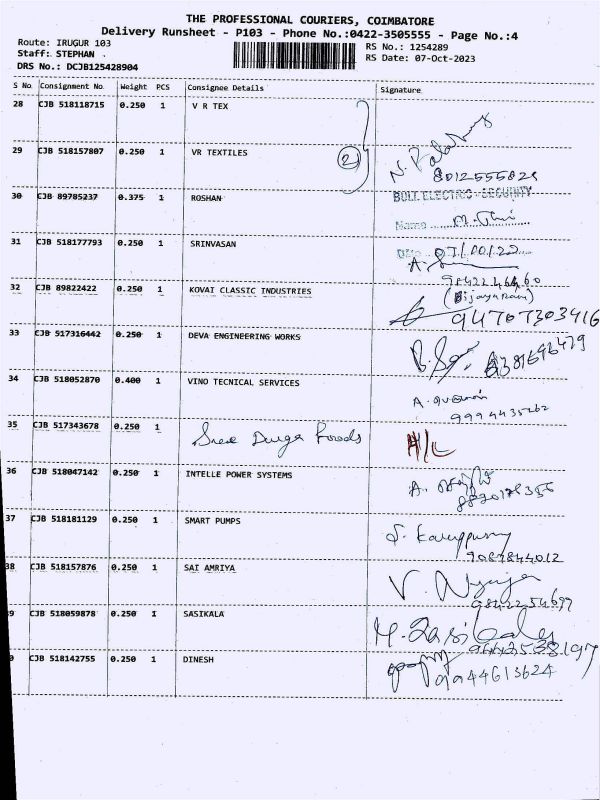 THE PROFESSIONAL COURIERS, COIMBATORE
Delivery Runsheet - P103 - Phone No.:0422-3505555 - Page No.:4
Route: IRUGUR 103
RS No.: 1254289
Staff: STEPHAN
RS Date: 07-Oct-2023
DRS No.: DCJB125428904
S No Consignment No. Weight PCS Consignee Details Signature
28 CJB 518118715 0.250 1 V R TEX
29 CJB 518157807 0.250 1 VR TEXTILES
2
30 CJB 89785237 0.375 1 ROSHAN BULL ELECTRIC SECURITY
Name
31 CJB 518177793 0.250 1 SRINVASAN
32 CJB 89822422 0.250 1 KOVAI CLASSIC INDUSTRIES
94767303416
33 CJB 517316442 0.250 1 DEVA ENGINEERING WORKS
34 CJB 518052870 0.400 1 VINO TECNICAL SERVICES
35 CJB 517343678 0.250 1 Sree Durga Foods H/L
36 CJB 518047142 0.250 1 INTELLE POWER SYSTEMS
37 CJB 518181129 0.250 1 SMART PUMPS
9087844012
38 CJB 518157876 0.250 1 SAI AMRIYA
9842254697
9 CJB 518059878 0.250 1 SASIKALA
CJB 518142755 0.250 1 DINESH
9944613624